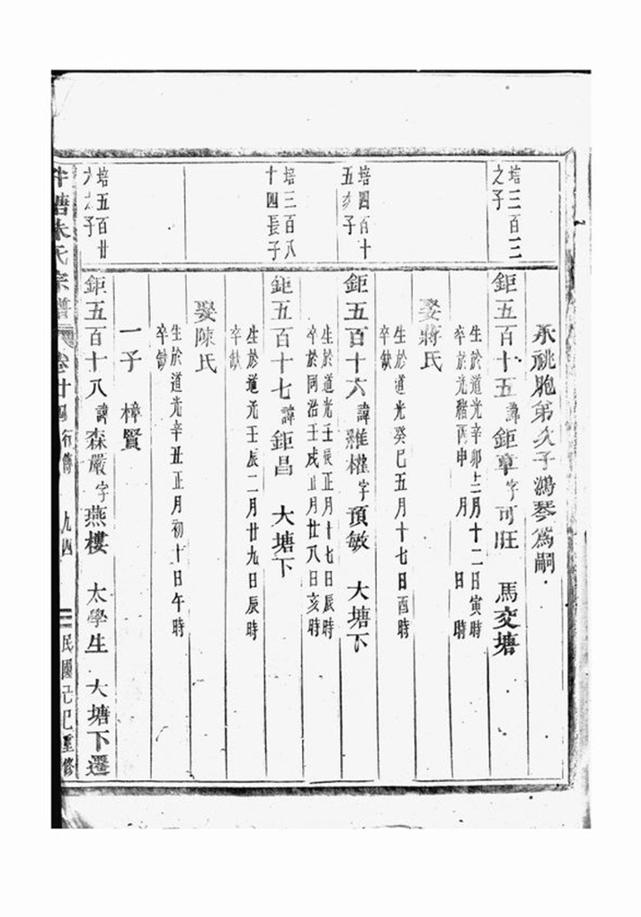 承祧胞弟次子鴻琴為嗣
培三百三
之子
鉅五百十五 諱鉅章字可旺 馬交塘
生於道光辛卯三月十二日寅時
卒於光緒丙申 月 日 時
娶蔣氏
生於道光癸巳五月十七日酉時
卒缺
培四百十
五次子
鉅五百十六 諱雅權字預敏 大塘下
生於道光壬辰正月十七日辰時
卒於同治壬戌正月廿八日亥時
培三百八
十四長子
鉅五百十七 諱鉅昌 大塘下
生於道光壬辰二月廿九日辰時
卒缺
娶陳氏
生於道光辛丑正月初十日午時
卒缺
一子 樟賢
培五百廿
六之子
鉅五百十八 諱森嚴字燕樓 太學生 大塘下遷
塘朱氏宗譜 卷廿四 行傳 九四 民國己巳重修